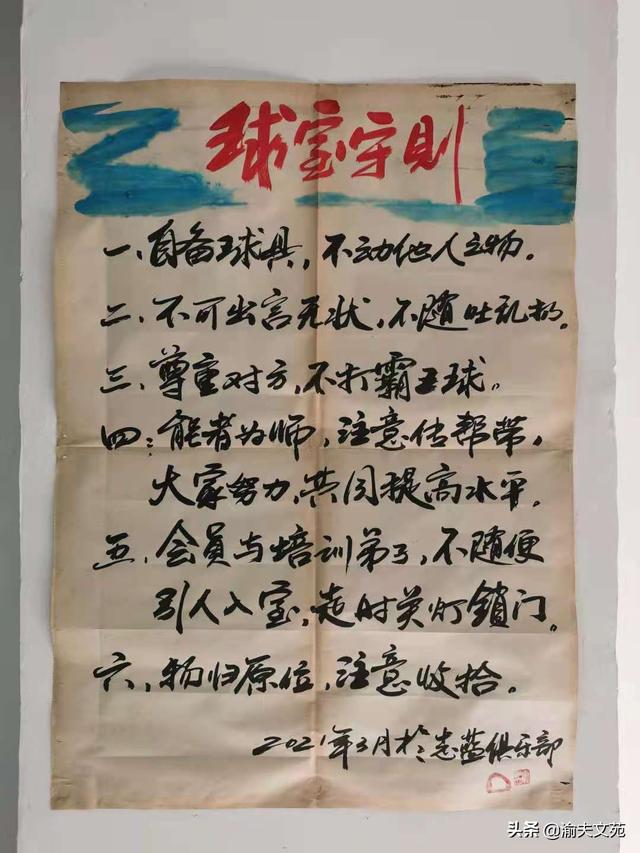 球室守则
一、自备球具，不动他人之物。
二、不可出言无状，不随吐乱扔。
三、尊重对方，不打霸王球。
四：能者为师，注意传帮带。
大家努力，共同提高水平。
五、会员与培训弟子，不随便
引人入室，走时关灯鎖门。
六、物归原位，注意收拾。
2021年3月于志蓝俱乐部
头条@渝夫文苑